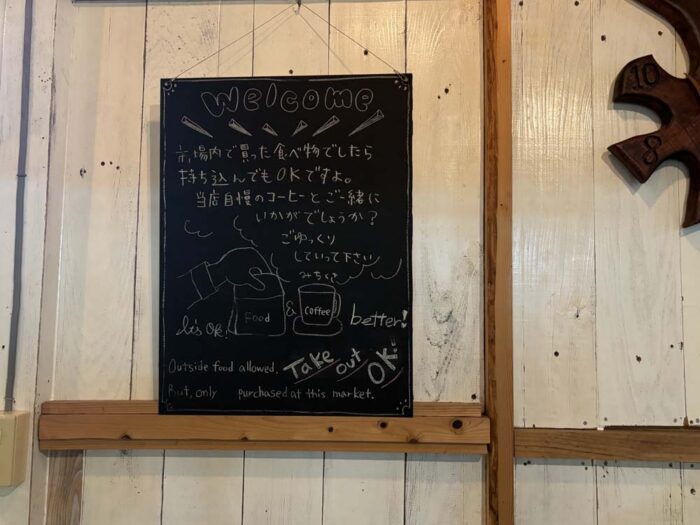 Welcome
市場内で買った食べ物でしたら
持ち込んでもOKですよ。
当店自慢のコーヒーとご一緒に
いかがでしょうか?
ごゆっくり
していって下さい
みちくさ
Food
&
Coffee
It's OK!
better!
Outside food allowed.
Take out OK!
But, only purchased at this market.
10
8